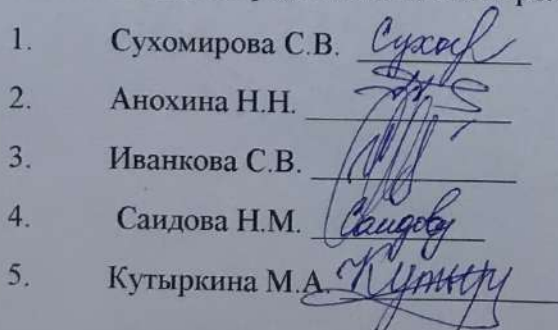 1. Сухомирова С.В. Сухом
2. Анохина Н.Н.
3. Иванкова С.В.
4. Саидова Н.М. Саидову
5. Кутыркина М.А. Кутыр